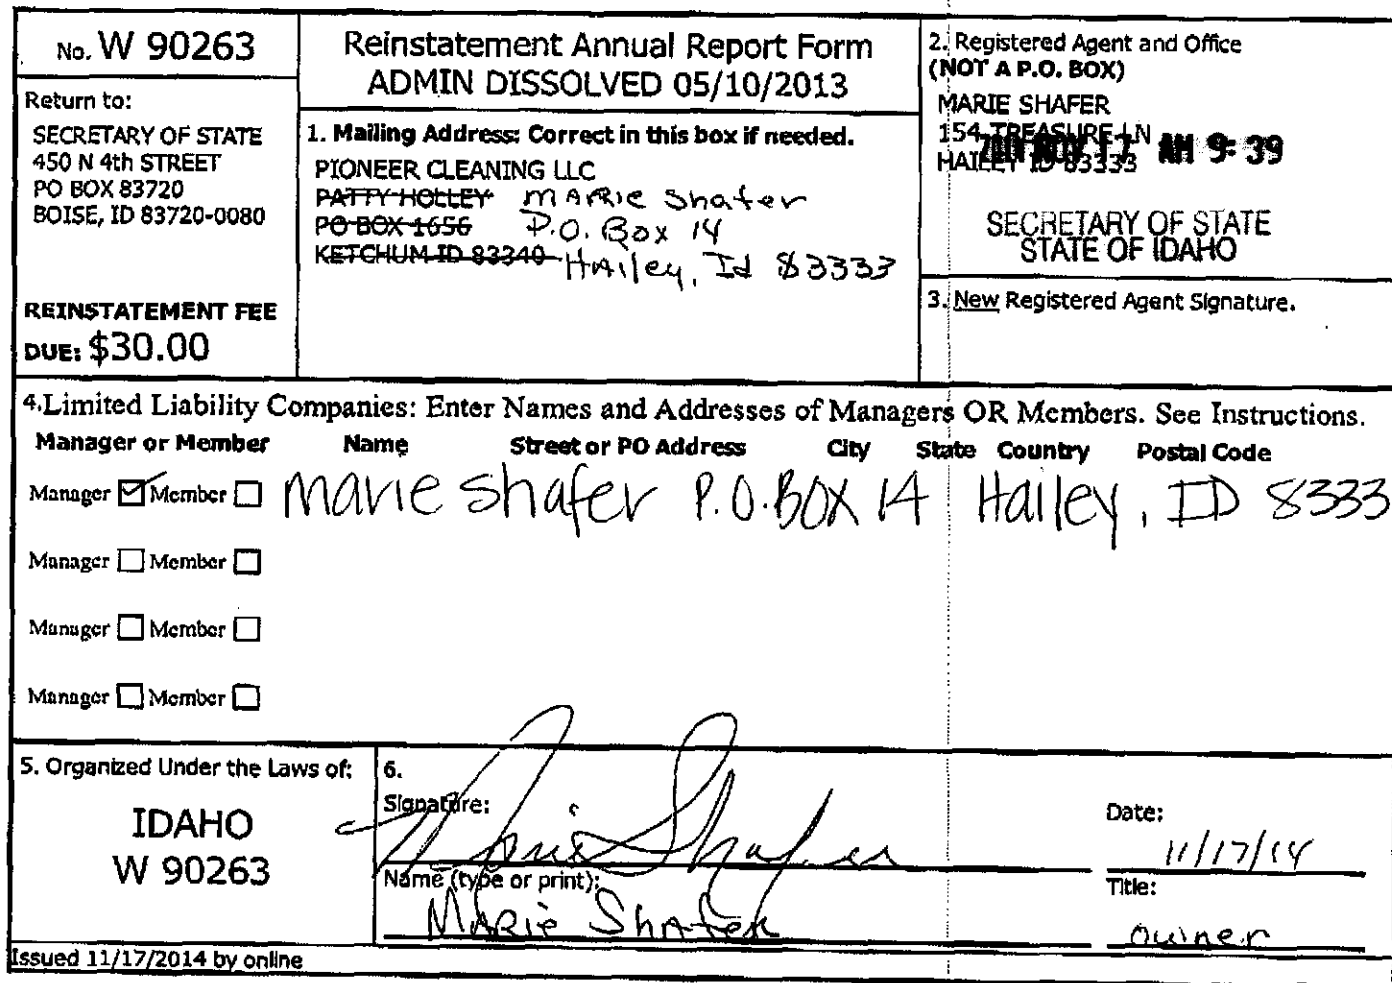 No. W 90263
Return to:
SECRETARY OF STATE
450 N 4th STREET
PO BOX 83720
BOISE, ID 83720-0080
REINSTATEMENT FEE
DUE: $30.00
Reinstatement Annual Report Form
ADMIN DISSOLVED 05/10/2013
1. Mailing Address: Correct in this box if needed.
PIONEER CLEANING LLC
PATTY HOLLEY Marie Shafer
PO BOX 1656 P.O. Box 14
KETCHUM ID 83340 Hailey, Id 83333
2. Registered Agent and Office
(NOT A P.O. BOX)
MARIE SHAFER
154 TREASURE LN
HAILEY ID 83333
NOV 17 AM 9:39
SECRETARY OF STATE
STATE OF IDAHO
3. New Registered Agent Signature.
4. Limited Liability Companies: Enter Names and Addresses of Managers OR Members. See Instructions.
Manager or Member Name Street or PO Address City State Country Postal Code
Manager Member Marie Shafer P.O. BOX 14 Hailey, ID 8333
Manager Member
Manager Member
Manager Member
5. Organized Under the Laws of:
IDAHO
W 90263
6.
Signature: Marie Shafer
Date: 11/17/14
Name (type or print): Marie Shafer
Title: owner
Issued 11/17/2014 by online